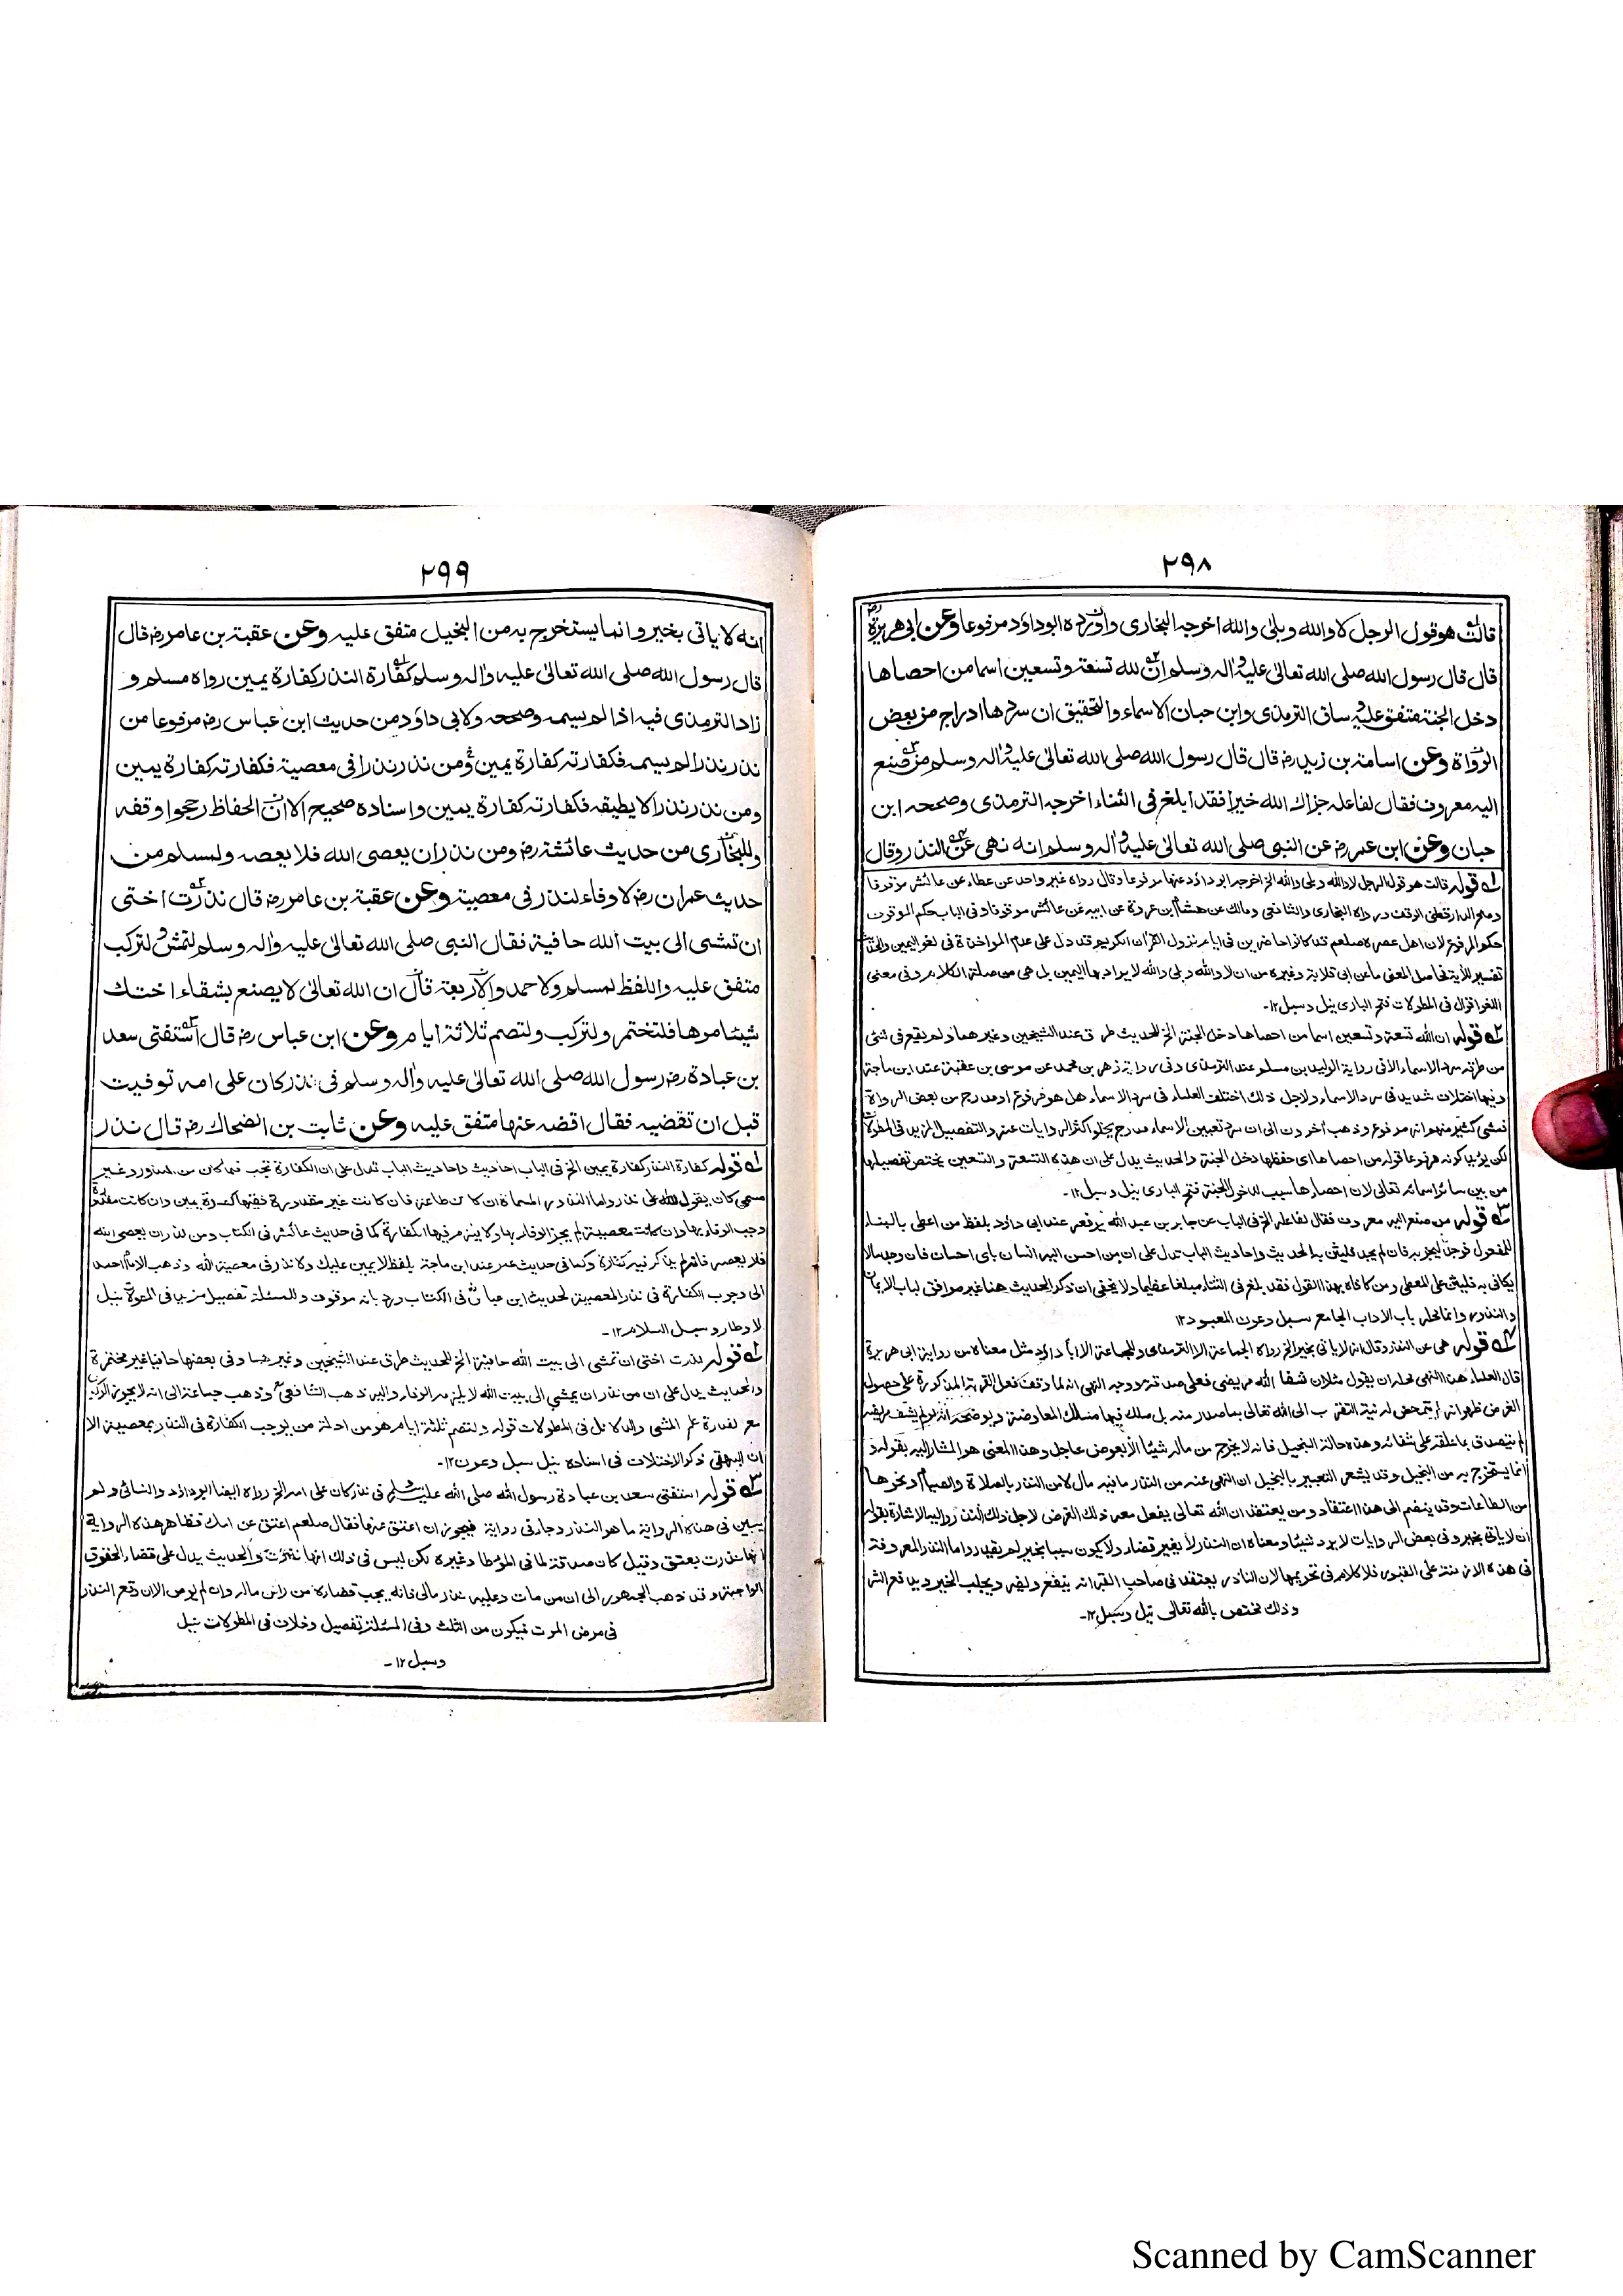 ٢٩٨
قالت هو قول الرجل لا والله وبلى والله اخرجه البخارى واورده ابوداؤد مرفوعا وعن ابى هريرة رض
قال قال رسول الله صلى الله تعالى عليه واله وسلم ان لله تسعة وتسعين اسما من احصاها
دخل الجنة متفق عليه وساق الترمذى وابن حبان الاسماء والتحقيق ان سردها ادراج من بعض
الرواة وعن اسامة بن زيد رض قال قال رسول الله صلى الله تعالى عليه واله وسلم من صنع
اليه معروف فقال لفاعله جزاك الله خيرا فقد ابلغ فى الثناء اخرجه الترمذى وصححه ابن
حبان وعن ابن عمر رض عن النبى صلى الله تعالى عليه واله وسلم انه نهى عن النذر وقال
له قوله قالت هو قول الرجل لا والله وبلى والله الخ اخرجه ابو داؤد عنها مرفوعا وقال رواه غير واحد عن عطاء عن عائشة موقوفا
وصحح الدارقطنى الوقف ورواه البخارى والشافعى ومالك عن هشام بن عروة عن ابيه عن عائشة موقوفا وفى الباب حكم الموقوف
حكم المرفوع لان اهل عصره صلعم قد كانوا حاضرين فى ايام نزول القران الكريم قد دل على عدم المواخذة فى لغو اليمين
تفسير الأية فحاصل المعنى ما عن ابى قلابة وغيره من ان لا والله وبلى والله لا يراد بها اليمين بل هى من صلة الكلام وفى معنى
اللغو اقوال فى المطولات فتح البارى نيل وسبل ١٢-
قوله ان لله تسعة وتسعين اسما من احصاها دخل الجنة الخ للحديث طرق عند الشيخين وغيرهما ولم يقع فى شئ
من طرقه سرد الاسماء الا فى رواية الوليد بن مسلم عند الترمذى وفى رواية زهير بن محمد عن موسى بن عقبة عند ابن ماجة
وفيها اختلاف شديد فى سرد الاسماء ولاجل ذلك اختلف العلماء فى سرد الاسماء هل هو مرفوع او مدرج من بعض الرواة
فمشى كثير منهم انه مرفوع وذهب أخرون الى ان سرد تعيين الاسماء مدرج لخلو اكثر الروايات عنه والتفصيل المزيد فى المطولات
من احصاها اى حفظها دخل الجنة والحديث يدل على ان هذه التسعة والتسعين يختص تفصيلها
من بين سائر اسمائه تعالى لان احصارها سبب لدخول الجنة فتح البارى نيل وسبل ١٢-
قوله من صنع اليه معروف فقال لفاعله الخ فى الباب عن جابر بن عبد الله يرفعه عند ابى داؤد بلفظ من اعطى بالبناء
للمفعول فوجد فليجز به فان لم يجد فليثن به الحديث واحاديث الباب تدل على ان من احسن اليه انسان باى احسان فان وجد مالا
يكافى به فليثن على المعطى ومن كافاه بهذا القول فقد بلغ فى الثناء مبلغا عظيما ولا يخفى ان ذكر الحديث هنا غير موافق لباب الايمان
والنذور وانما محله باب الاداب الجامع سبل وعون المعبود ١٢
قوله نهى عن النذر وقال انه لا ياتى بخير الخ رواه الجماعة الا الترمذى وللجماعة الا أبا داؤد مثل معناه من رواية ابى هريرة
قال العلماء هذا النهى محله ان يقول مثلا ان شفا الله مريضى فعلى صدقة ووجه النهى انه لما وقف فعل القربة المذكورة على حصول
الغرض ظهر انه لم يتمحض له نية التقرب الى الله تعالى بما صدر منه بل سلك فيها مسلك المعاوضة ويوضحه انه لو لم يشف مريضه
لم يتصدق بما علقه على شفائه وهذه حالة البخيل فانه لا يخرج من ماله شيئا الا بعوض عاجل وهذا المعنى هو المشار اليه بقوله
انما يستخرج به من البخيل وقد يشعر التعبير بالبخيل ان النهى عنه من النذر ما فيه مال لا من النذر بالصلاة والصيام ونحوها
من الطاعات وقد ينضم الى هذا اعتقاد ومن يعتقد ان الله تعالى يفعل معه ذلك الغرض لاجل ذلك النذر واليه الاشارة بقوله
ان لا ياتى بخير وفى بعض الروايات لا يرد شيئا ومعناه ان النذر لا يغير قضاء ولا يكون سببا بخير لم يقدر واما النذر المعروفة
فى هذه الازمنة على القبور فلا كلام فى تحريمها لان الناذر يعتقد فى صاحب القبر انه ينفع ويضر ويجلب الخير ويدافع الشر
وذلك مختص بالله تعالى نيل وسبل ١٢-
٢٩٩
انه لا ياتى بخير وانما يستخرج به من البخيل متفق عليه وعن عقبة بن عامر رض قال
قال رسول الله صلى الله تعالى عليه واله وسلم كفارة النذر كفارة يمين رواه مسلم و
زاد الترمذى فيه اذا لم يسمه وصححه ولابى داؤد من حديث ابن عباس رض مرفوعا من
نذر نذرا لم يسمه فكفارته كفارة يمين ومن نذر نذرا فى معصية فكفارته كفارة يمين
ومن نذر نذرا لا يطيقه فكفارته كفارة يمين واسناده صحيح الا ان الحفاظ رجحوا وقفه
وللبخارى من حديث عائشة رض ومن نذر ان يعصى الله فلا يعصه ولمسلم من
حديث عمران رض لا وفاء لنذر فى معصية وعن عقبة بن عامر رض قال نذرت اختى
ان تمشى الى بيت الله حافية فقال النبى صلى الله تعالى عليه واله وسلم لتمش ولتركب
متفق عليه واللفظ لمسلم ولاحمد والاربعة قال ان الله تعالى لا يصنع بشقاء اختك
شيئا مرها فلتختمر ولتركب ولتصم ثلاثة ايام وعن ابن عباس رض قال استفتى سعد
بن عبادة رض رسول الله صلى الله تعالى عليه واله وسلم فى نذر كان على امه توفيت
قبل ان تقضيه فقال اقضه عنها متفق عليه وعن ثابت بن الضحاك رض قال نذر
له قوله كفارة النذر كفارة يمين الخ فى الباب احاديث واحاديث الباب تدل على ان الكفارة تجب فيما كان من النذور غير
مسمى كان يقول لله على نذر واما النذور المسماة ان كانت طاعة فان كانت غير مقدورة ففيها كفارة يمين وان كانت مقدورة
وجب الوفاء بها وان كانت معصية لم يجز الوفاء بها ولا يلزم فيها الكفارة كما فى حديث عائشة فى الكتاب ومن نذر ان يعصى الله
فلا يعصه فانه لم يذكر فيه كفارة وكما فى حديث عمر عند ابن ماجة بلفظ لا يمين عليك ولا نذر فى معصية الله وذهب الامام احمد
الى وجوب الكفارة فى نذر المعصية لحديث ابن عباس فى الكتاب ورد بانه موقوف والمسئلة تفصيل مزيد فى المطولات نيل
لاوطار وسبل السلام ١٢-
قوله نذرت اختى ان تمشى الى بيت الله حافية الخ للحديث طرق عند الشيخين وغيرهما وفى بعضها حافية غير مختمرة
والحديث يدل على ان من نذر ان يمشى الى بيت الله لا يلزمه الوفاء واليه ذهب الشافعى وذهب جماعة الى انه لا يجوز الركوب
مع القدرة على المشى والدلائل فى المطولات قوله ولتصم ثلثة ايام هو من ادلة من يوجب الكفارة فى النذر بمعصية الا
ان البيهقى ذكر الاختلاف فى اسناده نيل سبل وعون ١٢-
قوله استفتى سعد بن عبادة رسول الله صلى الله عليه وسلم فى نذر كان على امه الخ رواه ايضا ابوداؤد والنسائى ولم
يبين فى هذه الرواية ما هو النذر وجاء فى رواية فيجزئ ان اعتق عنها فقال صلعم اعتق عن امك فظاهر هذه الرواية
انها نذرت بعتق وقيل كان صدقة لما فى المؤطا وغيره لكن ليس فى ذلك انها نذرت والحديث يدل على قضاء الحقوق
الواجبة وقد ذهب الجمهور الى ان من مات وعليه نذر مالى فانه يجب قضاره من راس ماله وان لم يوص الا ان وقع النذر
فى مرض الموت فيكون من الثلث وفى المسئلة تفصيل وخلاف فى المطولات نيل
وسبل ١٢-
Scanned by CamScanner